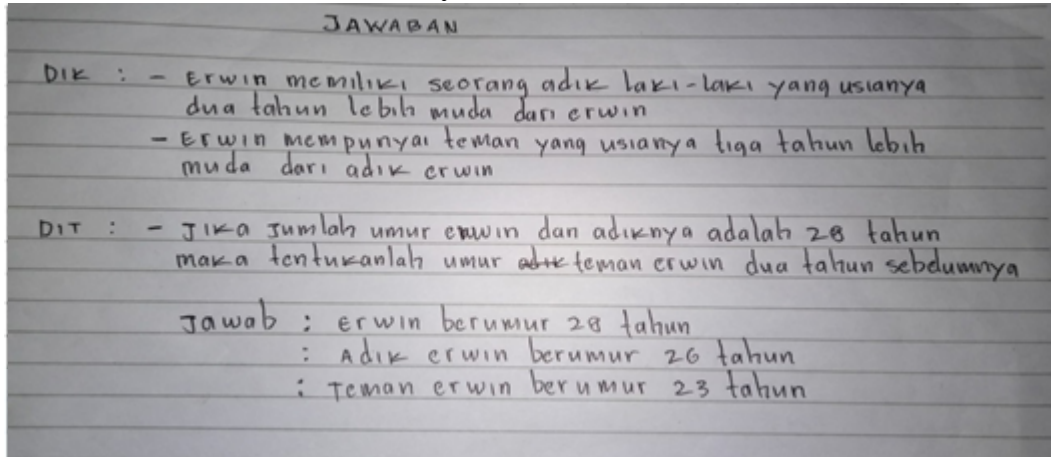 JAWABAN
DIK : - Erwin memiliki seorang adik laki-laki yang usianya
dua tahun lebih muda dari erwin
- Erwin mempunyai teman yang usianya tiga tahun lebih
muda dari adik erwin
DIT : - Jika jumlah umur erwin dan adiknya adalah 28 tahun
maka tentukanlah umur teman erwin dua tahun sebelumnya
Jawab : erwin berumur 28 tahun
: Adik erwin berumur 26 tahun
: Teman erwin berumur 23 tahun